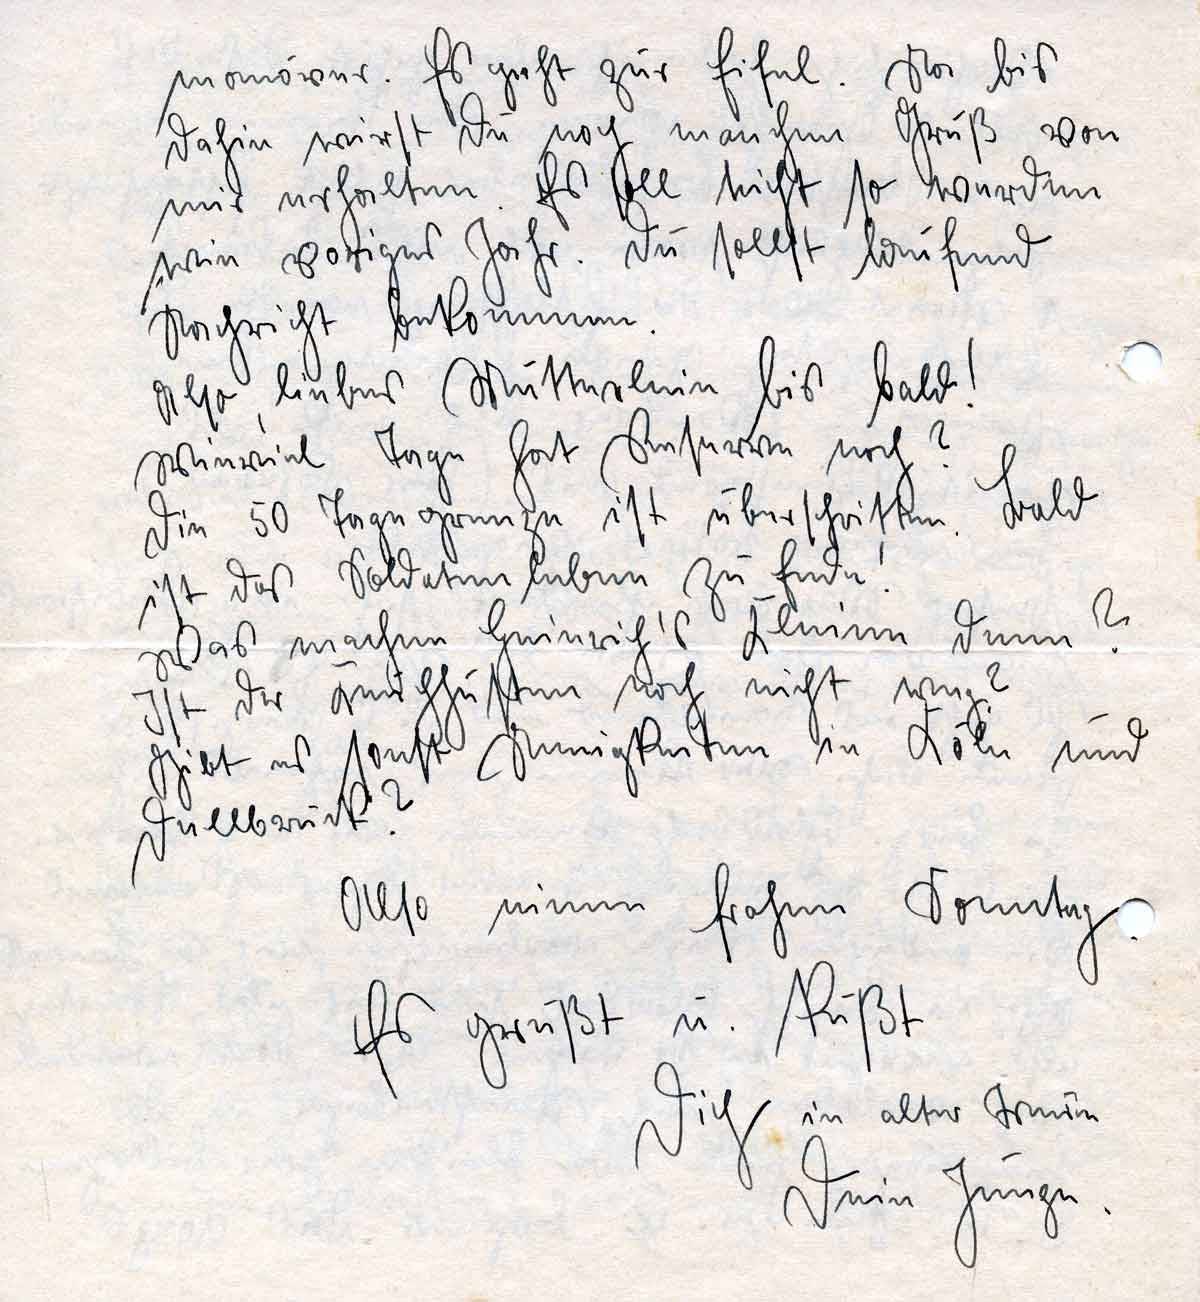 manöver. Es geht zur Eifel. Na bis
dahin wirst Du noch manchen Gruß von
mir erhalten. Es soll nicht so werden
wie voriges Jahr. Du sollst laufend
Nachricht bekommen.
Also, liebes Mutterlein bis bald!
Wieviel Tage hat Reserve noch?
Die 50 Tagegrenze ist überschritten. Bald
ist das Soldatenleben zu Ende!
Was machen Heinrich's Kleinen denn?
Ist der Keuchhusten noch nicht weg?
Gibt es sonst Neuigkeiten in Köln und
Dellbrück?
Also einen frohen Sonntag.
Es grüßt u. küßt
Dich in alter Treue
Dein Junge.